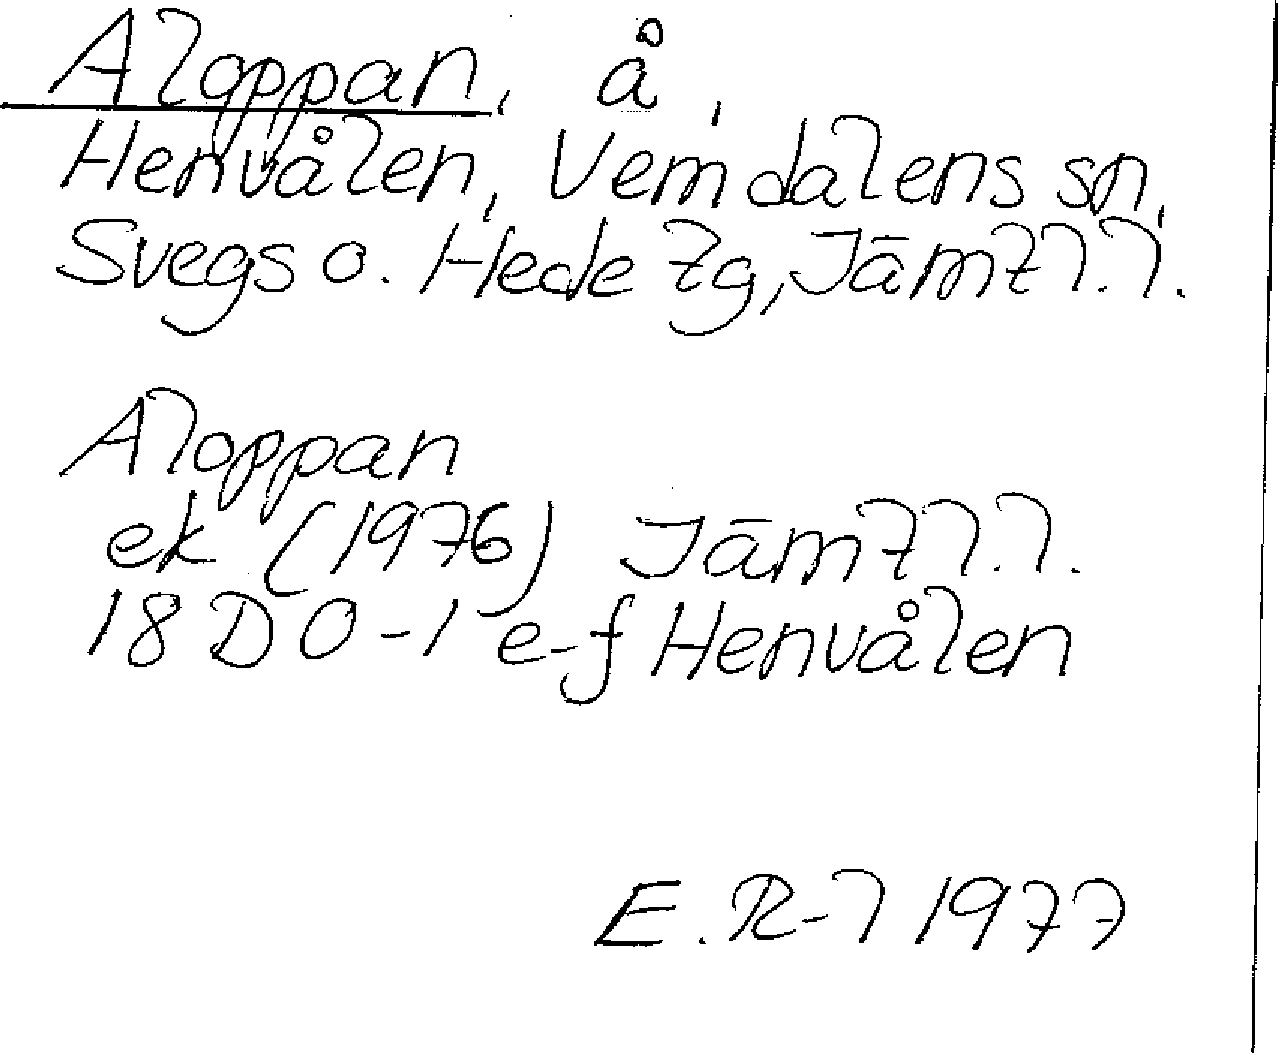 Aloppan, å,
Henvålen, Vemdalens sn,
Svegs o. Hede tg, Jämtl.l.
Aloppan
ek (1976) Jämtl.l.
18 D 0-1 e-f Henvålen
E.R-l 1977